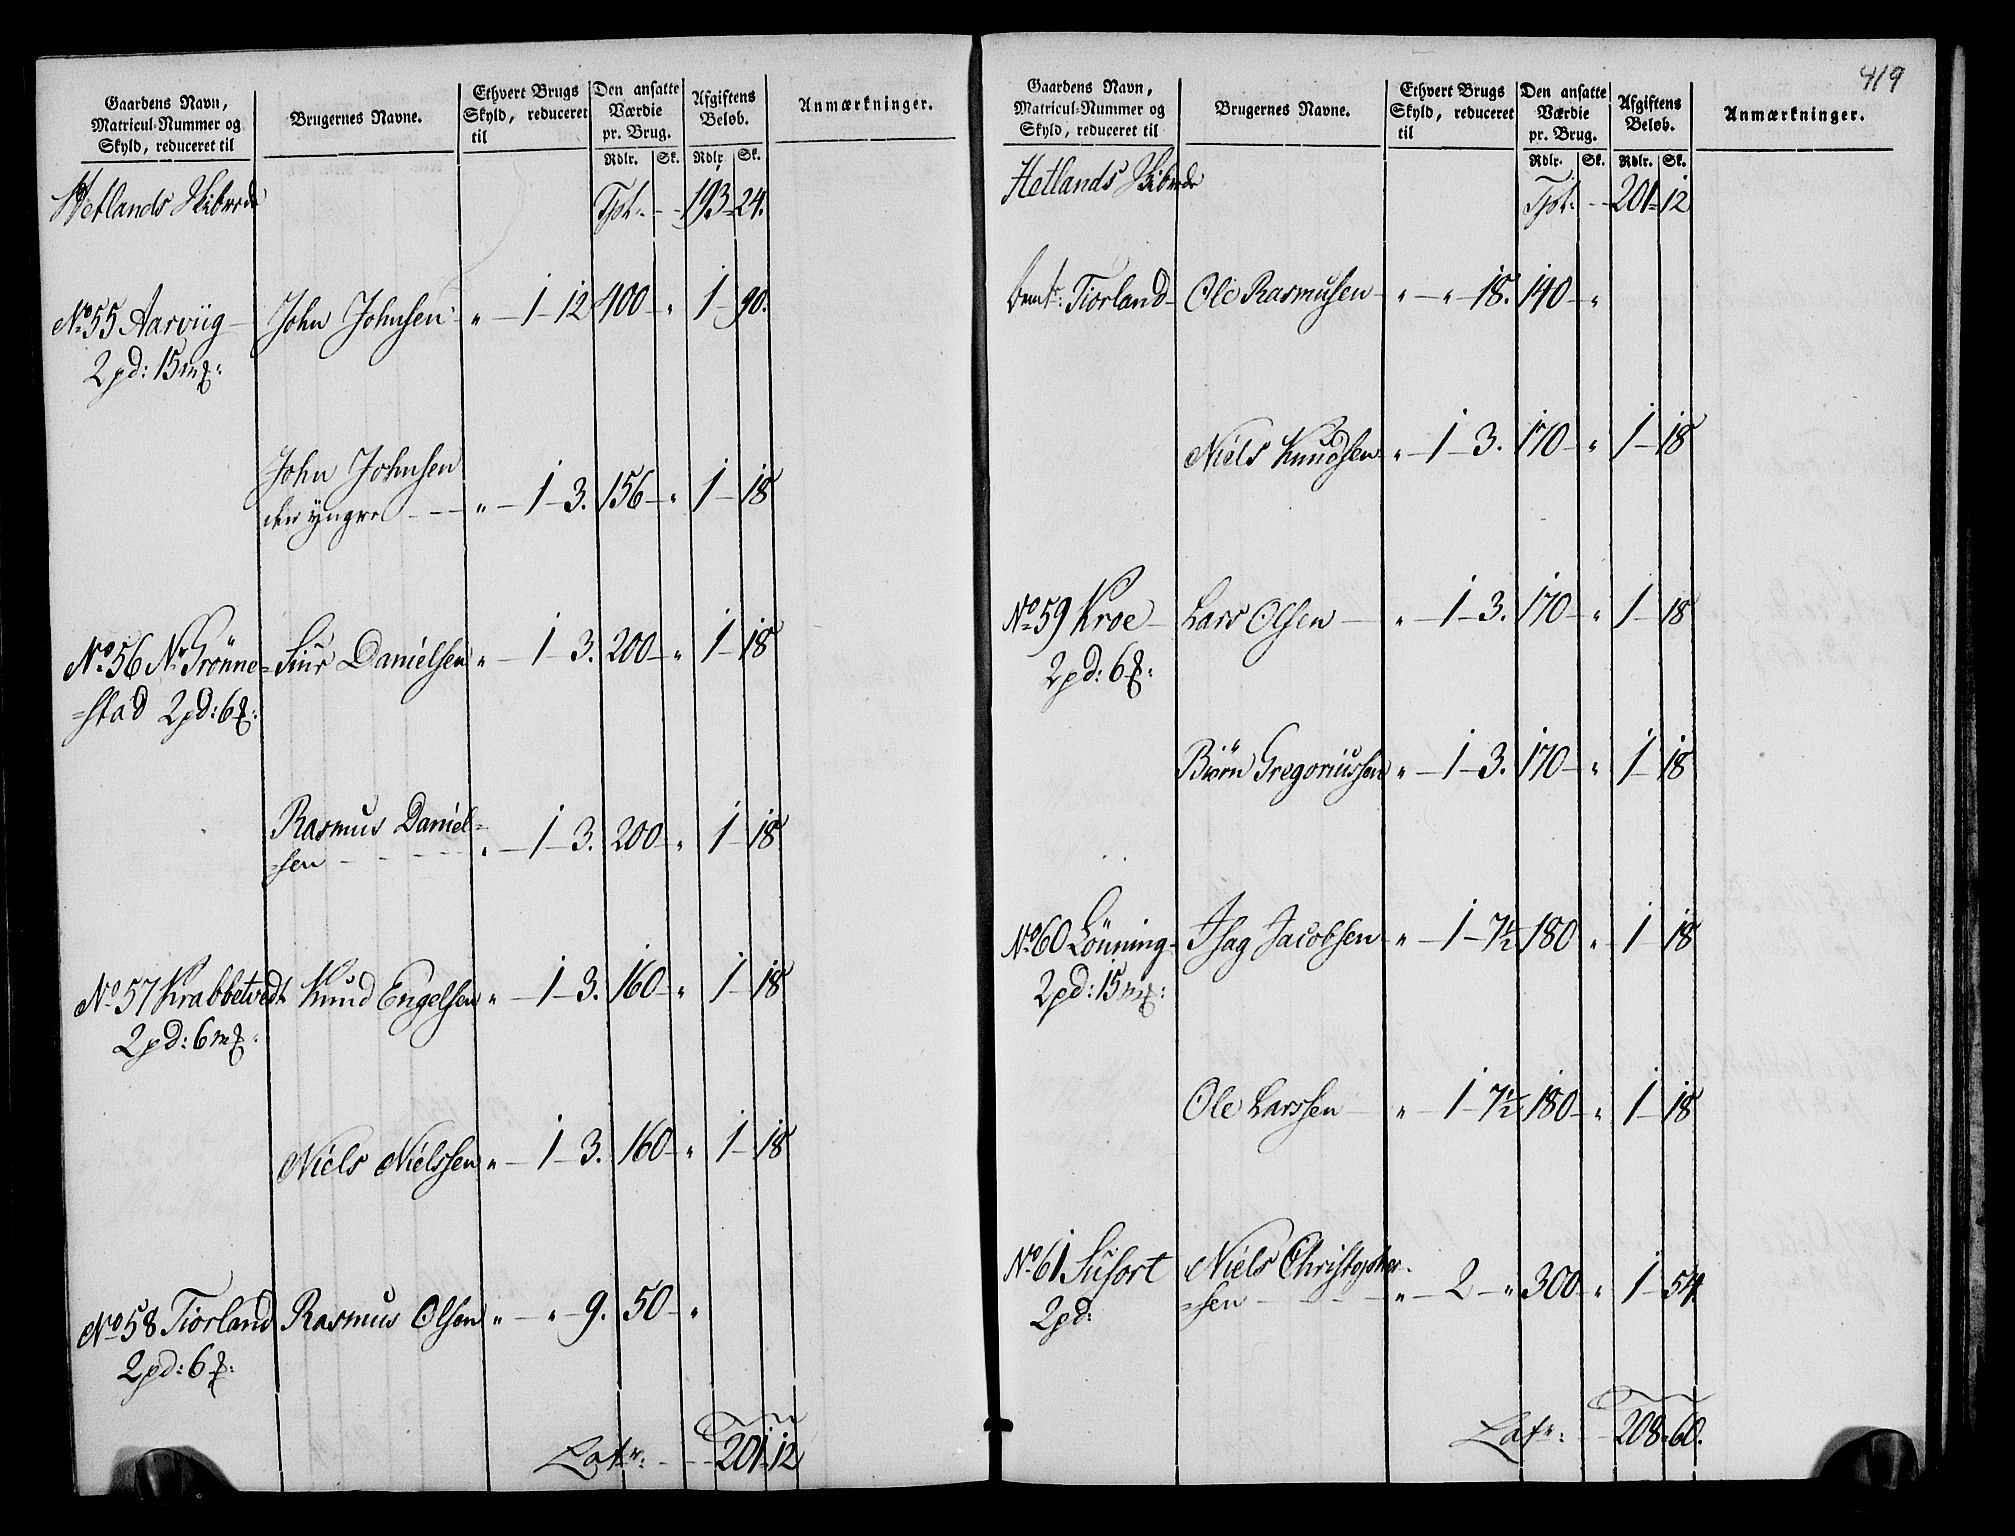 Gaardens Navn, Matricul-Nummer og Skyld, reduceret til | Brugernes Navne. | Ethvert Brugs Skyld, reduceret til | Den ansatte Værdie pr. Brug. Rdlr. Sk. | Afgiftens Beløb. Rdlr. Sk. | Anmærkninger.
Hetlands Skibrede Tpt: - - 193 - 24.
No 55 Aarviig - John Johnsen " - 1 - 12 400 - " 1 - 90.
2 pd: 15 m℔:
John Johnsen
den yngre - - - " - 1 - 3. 156 - " 1 - 18
No 56 Nr Grönne= Siur Danielsen " - 1 - 3. 200 - " 1 - 18
=stad 2 pd: 6 ℔:
Rasmus Daniel=
=sen - - - - " - 1 - 3. 200 - " 1 - 18
No 57 Krabbetvedt Knud Engelsen " - 1 - 3. 160 - " 1 - 18
2 pd: 6 m℔:
Niels Nielssen " - 1 - 3. 160 - " 1 - 18
No 58 Tiorland Rasmus Olsen " - " - 9. 50 - "
2 pd: 6 ℔:
Latr: - - 201 - 12
419
Gaardens Navn, Matricul-Nummer og Skyld, reduceret til | Brugernes Navne. | Ethvert Brugs Skyld, reduceret til | Den ansatte Værdie pr. Brug. Rdlr. Sk. | Afgiftens Beløb. Rdlr. Sk. | Anmærkninger.
Hetlands Skibrede Tpt: - - 201 - 12
Tiorland - Ole Rasmusen - " - " - 18. 140 - "
Niels Knudsen " - 1 - 3. 170 - " 1 - 18
No 59 Kroe - Lars Olsen - " - 1 - 3. 170 - " 1 - 18
2 pd: 6 ℔:
Biörn Gregoriussen " - 1 - 3. 170 - " 1 - 18
No 60 Lönning - Isag Jacobsen - " - 1 - 7½ 180 " 1 - 18
2 pd: 15 m℔:
Ole Larssen - " - 1 - 7½ 180 - " 1 - 18
No 61 Susort Niels Christopher=
2 pd: =sen - - - - " - 2 - " 300 - " 1 - 54
Latr: - - 208 - 60.